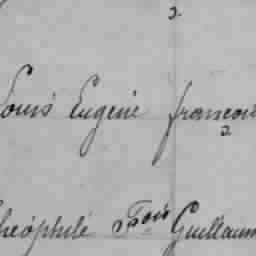 Louis Eugène françois
Théophile Frois Guillaume